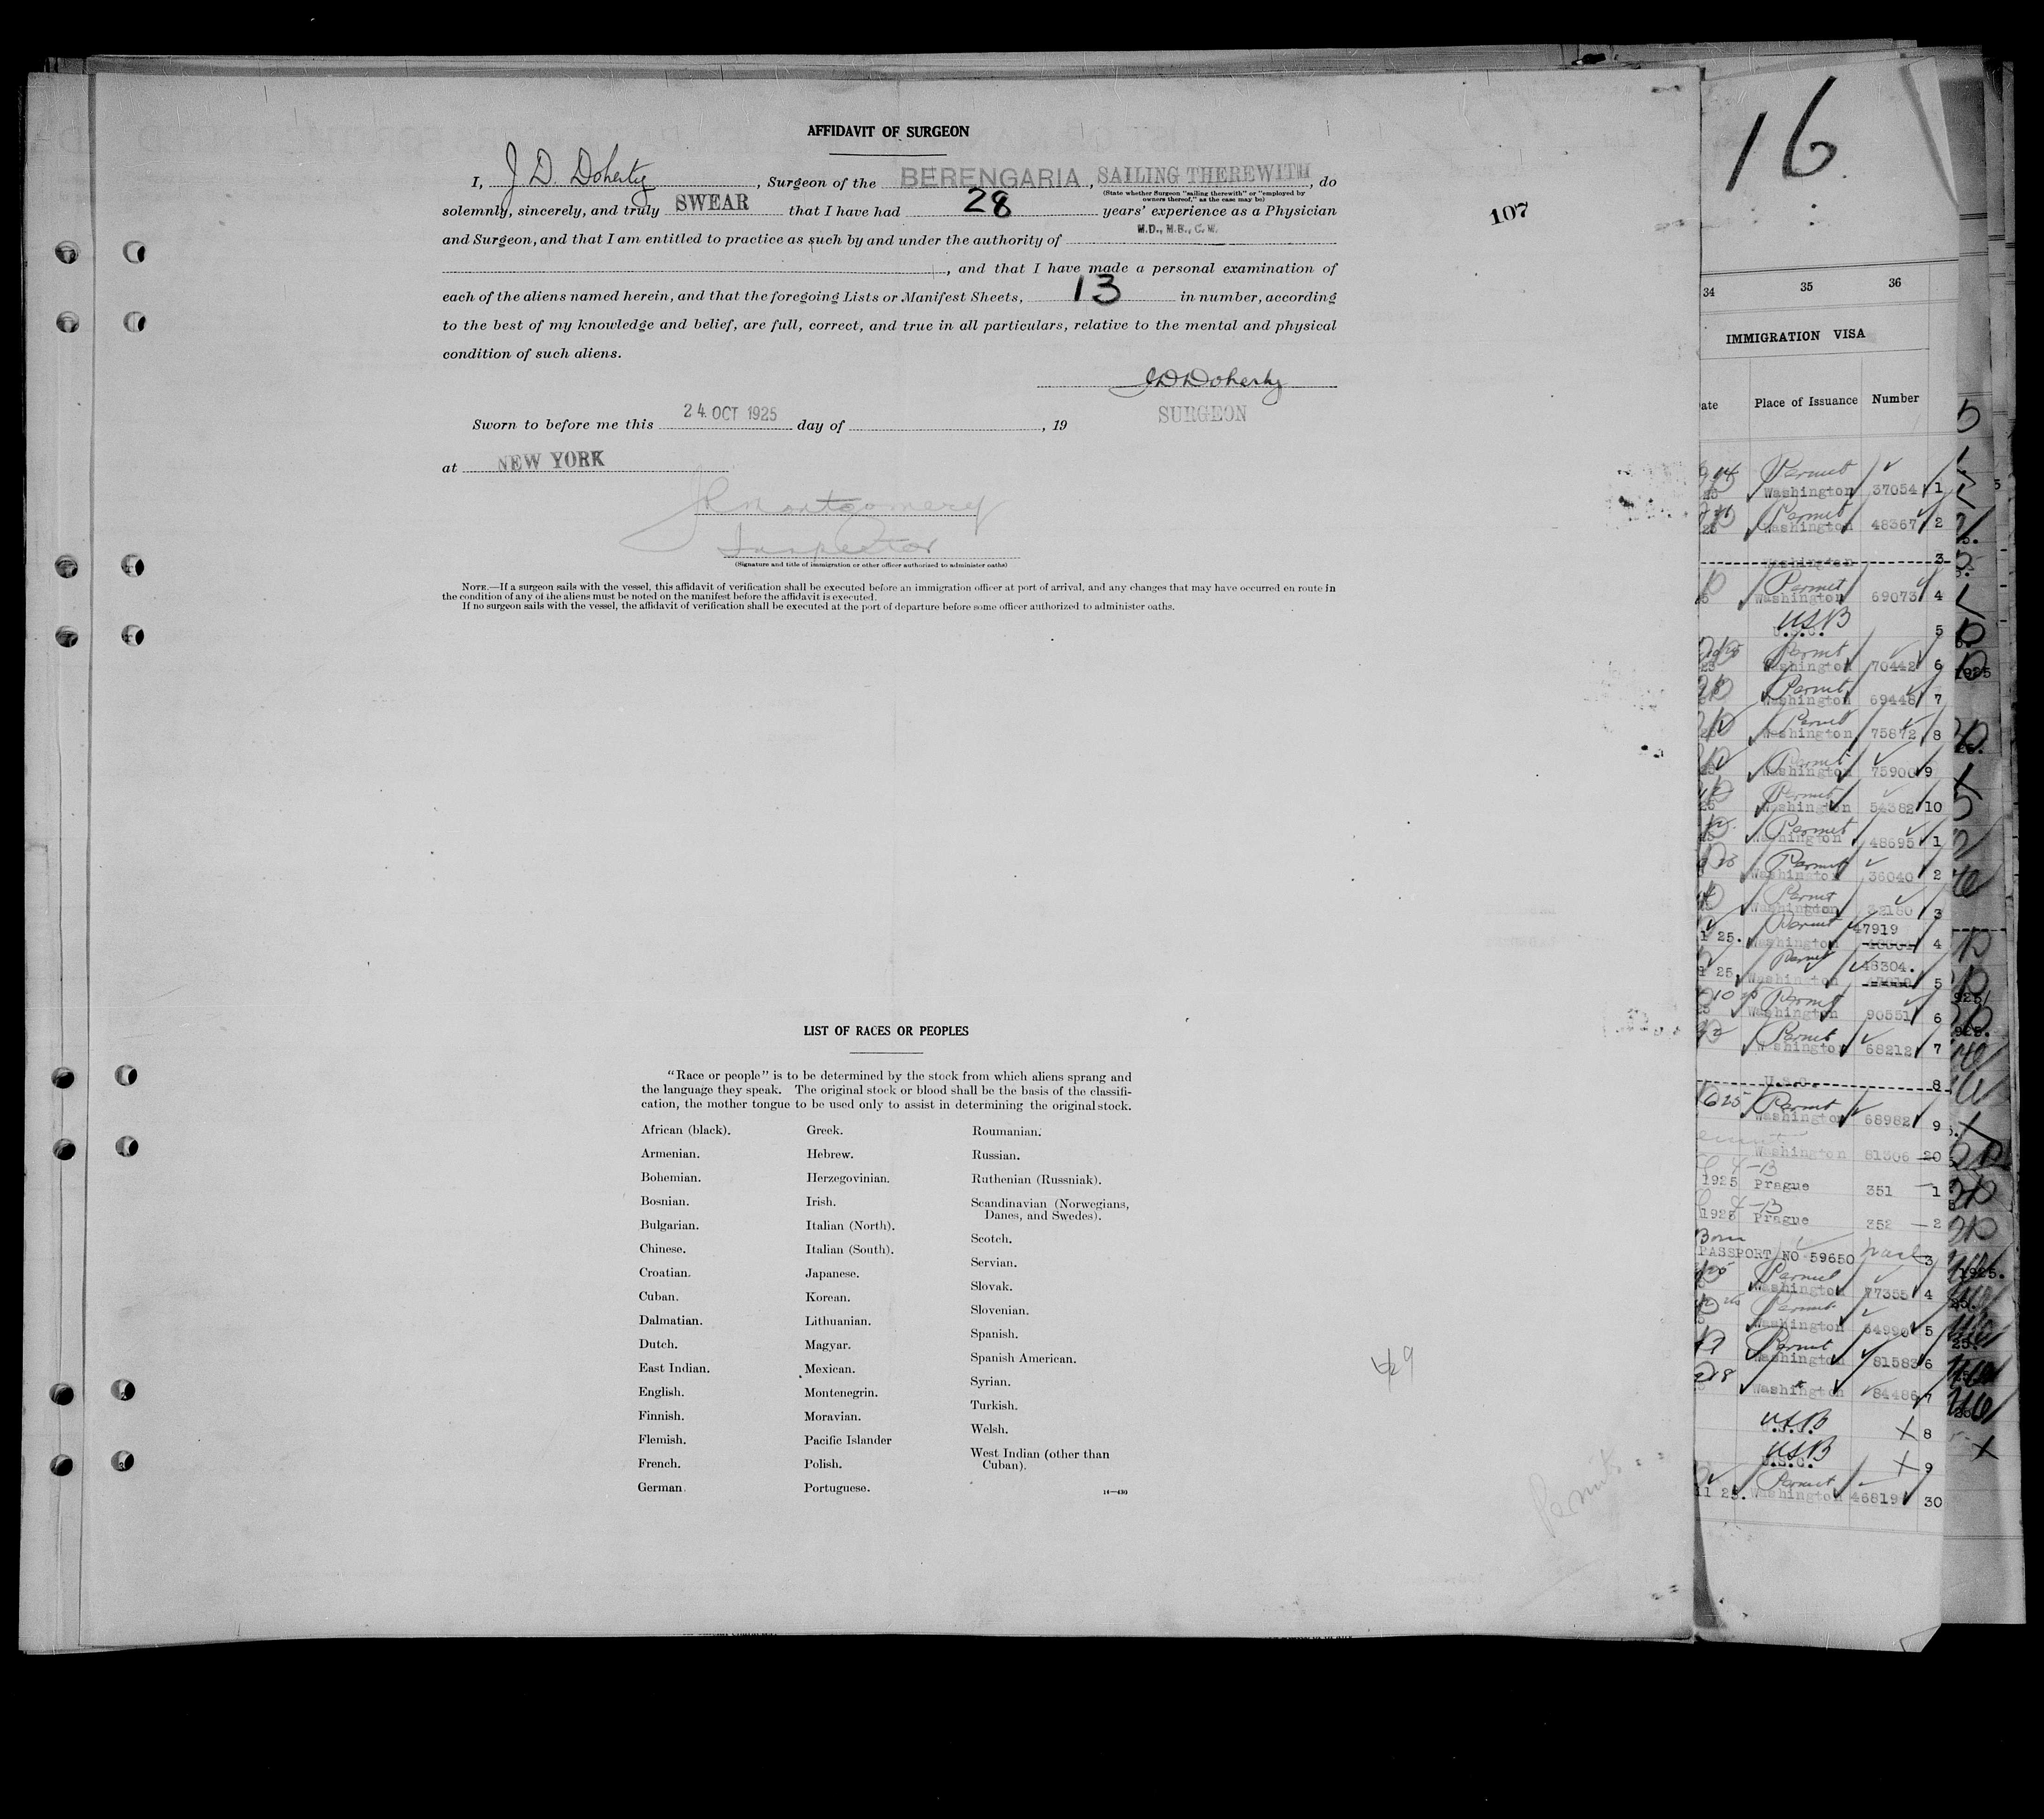 AFFIDAVIT OF SURGEON
I, J. D. Doherty, Surgeon of the BERENGARIA, SAILING THEREWITH, do
(State whether Surgeon "sailing therewith" or "employed by
owners thereof," as the case may be)
solemnly, sincerely, and truly SWEAR that I have had 28 years' experience as a Physician
and Surgeon, and that I am entitled to practice as such by and under the authority of M.D., M.B., C.M.
, and that I have made a personal examination of
each of the aliens named herein, and that the foregoing Lists or Manifest Sheets, 13 in number, according
to the best of my knowledge and belief, are full, correct, and true in all particulars, relative to the mental and physical
condition of such aliens.
J D Doherty
SURGEON
Sworn to before me this 24 OCT 1925 day of , 19
at NEW YORK
J Montgomery
Inspector
(Signature and title of immigration or other officer authorized to administer oaths)
NOTE.—If a surgeon sails with the vessel, this affidavit of verification shall be executed before an immigration officer at port of arrival, and any changes that may have occurred en route in
the condition of any of the aliens must be noted on the manifest before the affidavit is executed.
If no surgeon sails with the vessel, the affidavit of verification shall be executed at the port of departure before some officer authorized to administer oaths.
107
LIST OF RACES OR PEOPLES
"Race or people" is to be determined by the stock from which aliens sprang and
the language they speak. The original stock or blood shall be the basis of the classifi-
cation, the mother tongue to be used only to assist in determining the original stock.
African (black).
Armenian.
Bohemian.
Bosnian.
Bulgarian.
Chinese.
Croatian.
Cuban.
Dalmatian.
Dutch.
East Indian.
English.
Finnish.
Flemish.
French.
German.
Greek.
Hebrew.
Herzegovinian.
Irish.
Italian (North).
Italian (South).
Japanese.
Korean.
Lithuanian.
Magyar.
Mexican.
Montenegrin.
Moravian.
Pacific Islander
Polish.
Portuguese.
Roumanian.
Russian.
Ruthenian (Russniak).
Scandinavian (Norwegians,
Danes, and Swedes).
Scotch.
Servian.
Slovak.
Slovenian.
Spanish.
Spanish American.
Syrian.
Turkish.
Welsh.
West Indian (other than
Cuban).
14—430
Permits
16
34 35 36
IMMIGRATION VISA
Place of Issuance Number
Permit
Washington 37054 1
Permit
Washington 48367 2
Washington 3
Permit
Washington 69073 4
USB
5
Permit
Washington 70442 6
Permit
Washington 69448 7
Permit
Washington 75872 8
Permit
Washington 75900 9
Permit
Washington 54382 10
Permit
Washington 48695 1
Permit
Washington 36040 2
Permit
Washington 3
Permit 47919
25. Washington 4
Permit 48304.
25. Washington 5
Permit
Washington 90551 6
Permit
Washington 68212 7
U.S.C. 8
Permit
Washington 68982 9
Washington 81306 20
1925 Prague 351 1
1925 Prague 352 2
Born
PASSPORT NO 59650 3
Permit
Washington 77355 4
Permit
Washington 5
Permit
Washington 81583 6
Washington 84486 7
USB
8
USB
U.S.C. 9
Permit
25. Washington 46819 30